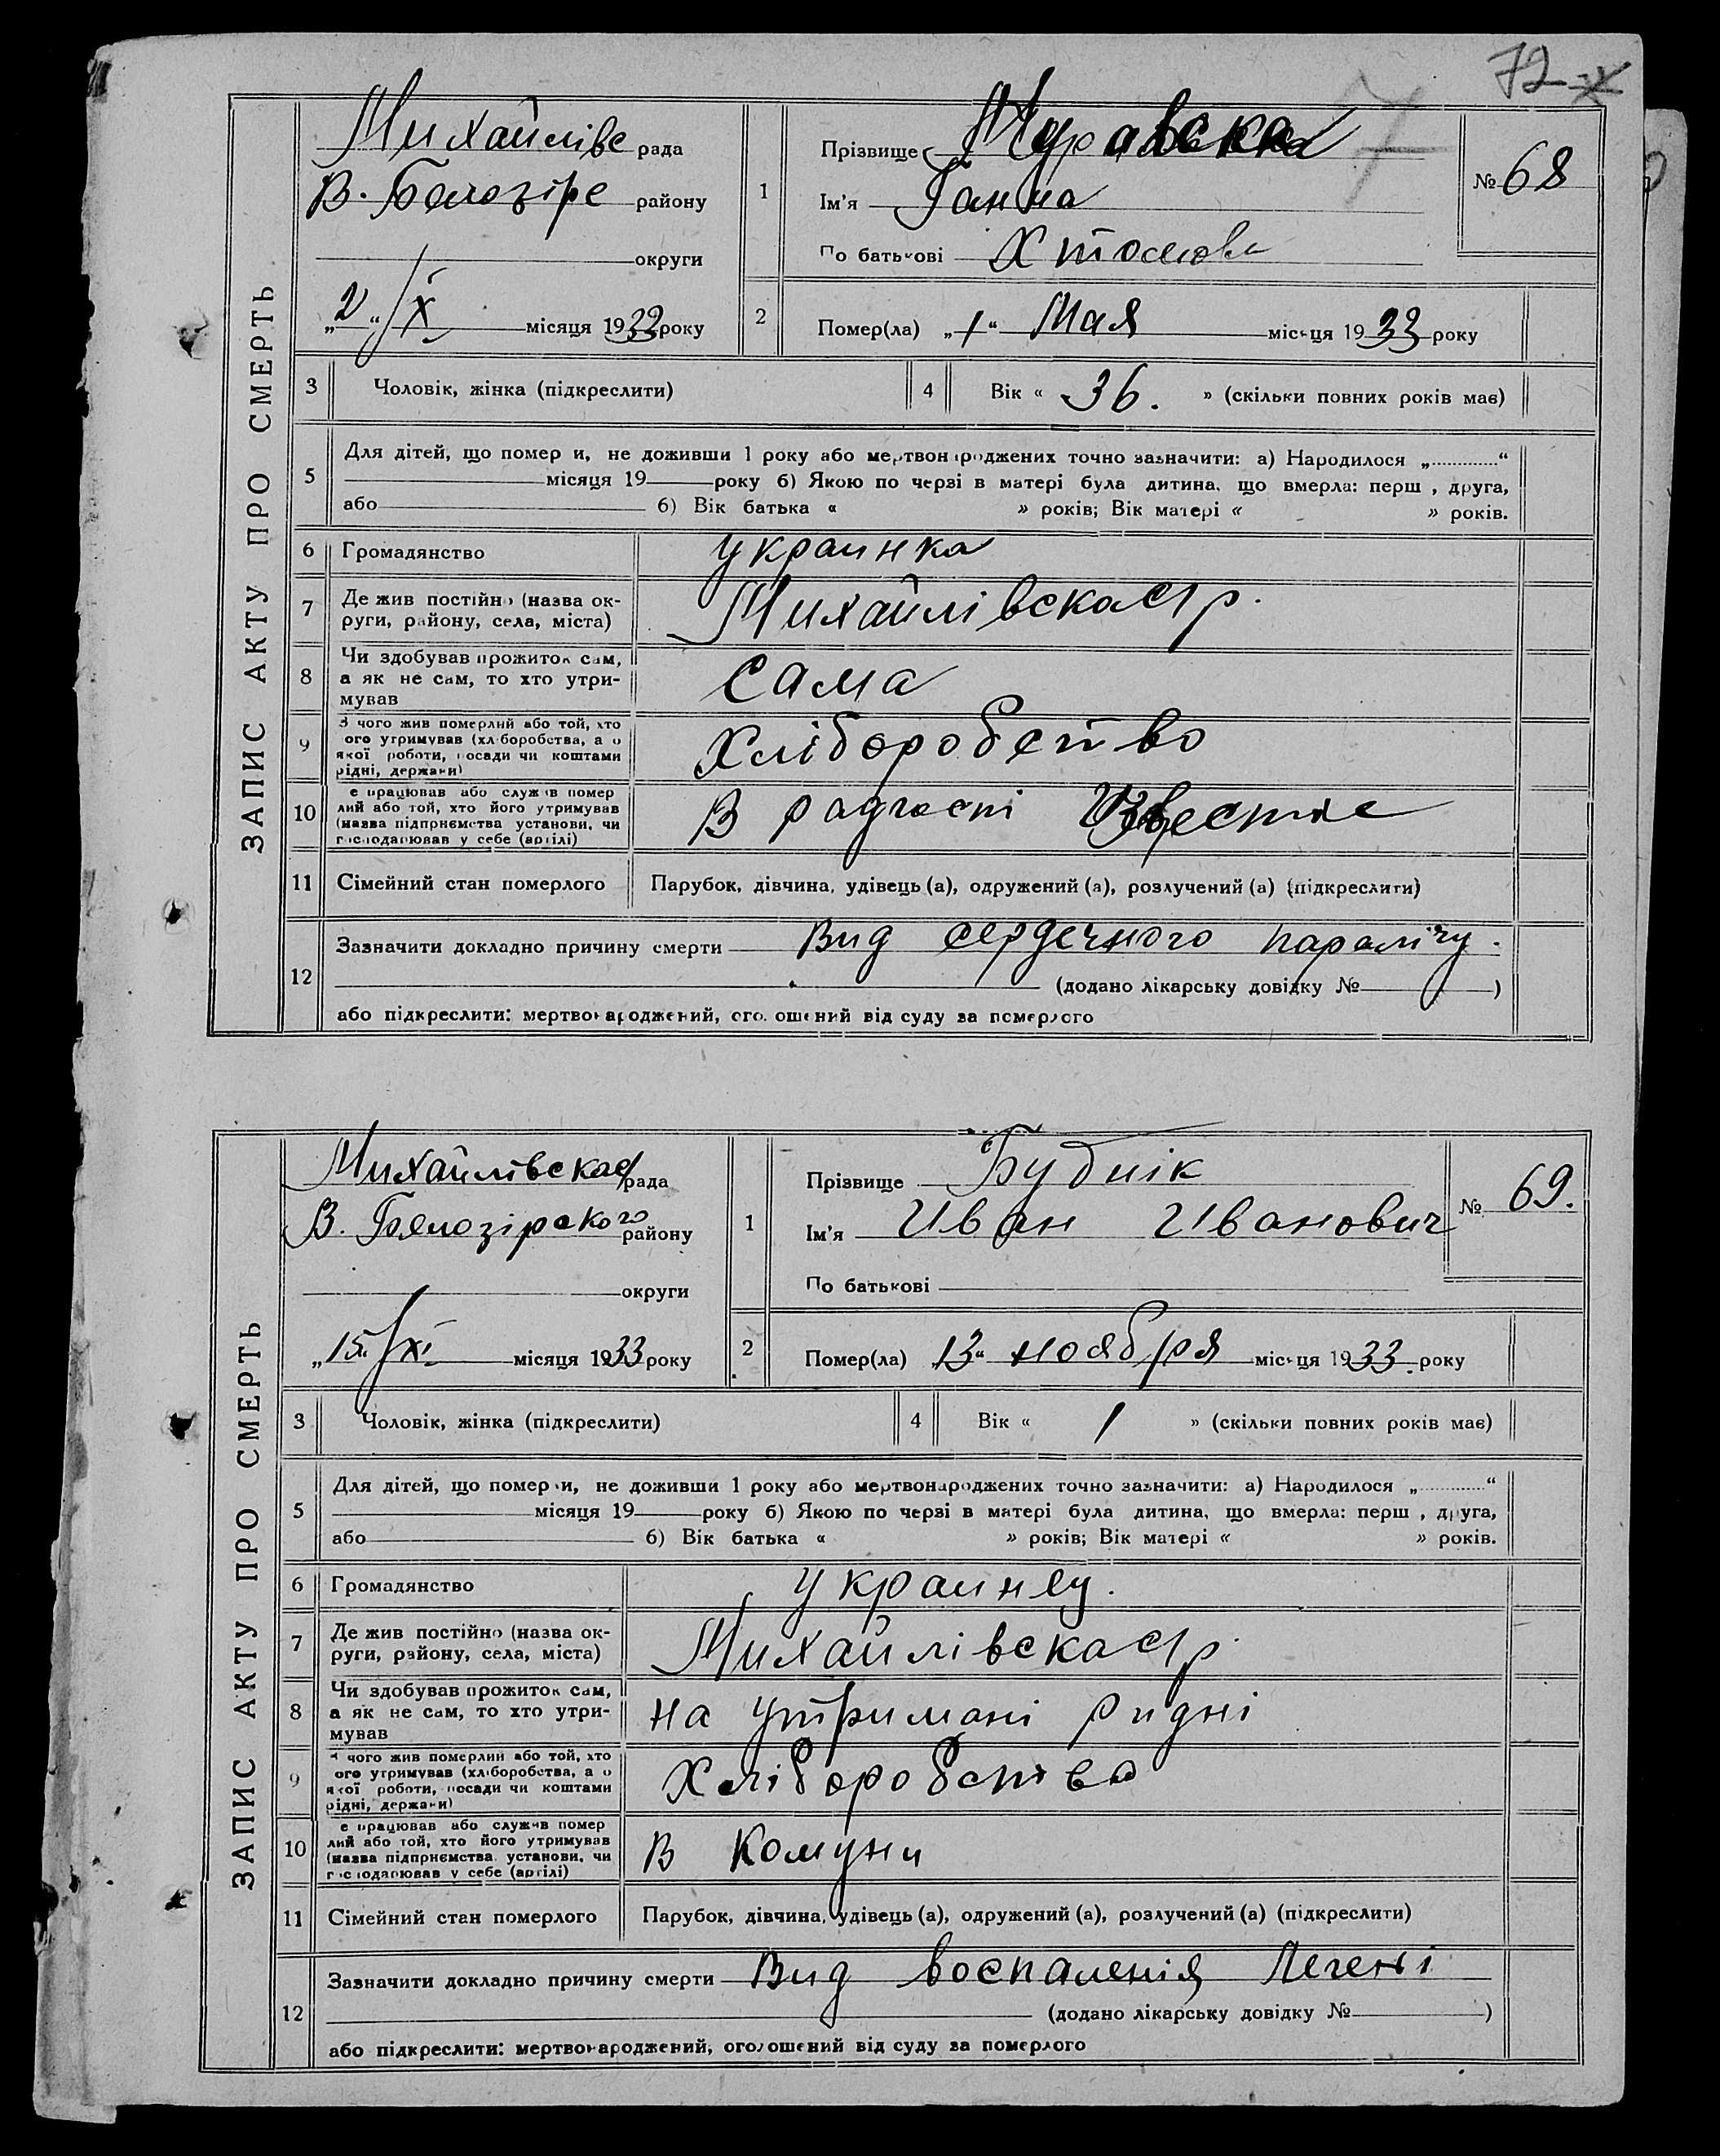 72
ЗАПИС АКТУ ПРО СМЕРТЬ
Михайлівс рада
В. Белозіре району
округи
„2“ X місяця 1933 року
1
Прізвище
Ім'я Ганна
По батькові
№ 68
2
Помер(ла) „1“ Мая місяця 1933 року
3
Чоловік, жінка (підкреслити)
4
Вік « 36. » (скільки повних років має)
5
Для дітей, що померли, не доживши 1 року або мертвонароджених точно зазначити: а) Народилося „ “
місяця 19 року б) Якою по черзі в матері була дитина, що вмерла: перша, друга,
або б) Вік батька « » років; Вік матері « » років.
6
Громадянство украинка
7
Де жив постійно (назва ок-
руги, району, села, міста)
Михайлівска с/р.
8
Чи здобував прожиток сам,
а як не сам, то хто утри-
мував
Сама
9
З чого жив померлий або той, хто
його утримував (хліборобства, або
якої роботи, посади чи коштами
рідні, держави)
Хліборобство
10
Де працював або служив помер
лий або той, хто його утримував
(назва підприємства установи, чи
господарював у себе (артілі)
В радгоспі
11
Сімейний стан померлого
Парубок, дівчина, удівець (а), одружений (а), розлучений (а) (підкреслити)
12
Зазначити докладно причину смерти Вид сердечного паралічу.
(додано лікарську довідку № )
або підкреслити: мертвонароджений, оголошений від суду за померлого
ЗАПИС АКТУ ПРО СМЕРТЬ
Михайлівска с/рада
В. Белозірского району
округи
„15“ XI місяця 1933 року
1
Прізвище Буднік
Ім'я Иван Иванович
По батькові
№ 69.
2
Помер(ла) 13“ ноября місяця 1933. року
3
Чоловік, жінка (підкреслити)
4
Вік « 1 » (скільки повних років має)
5
Для дітей, що померли, не доживши 1 року або мертвонароджених точно зазначити: а) Народилося „ “
місяця 19 року б) Якою по черзі в матері була дитина, що вмерла: перша, друга,
або б) Вік батька « » років; Вік матері « » років.
6
Громадянство украинец.
7
Де жив постійно (назва ок-
руги, району, села, міста)
Михайлівска с/р.
8
Чи здобував прожиток сам,
а як не сам, то хто утри-
мував
на утримані ридні
9
З чого жив померлий або той, хто
його утримував (хліборобства, або
якої роботи, посади чи коштами
рідні, держави)
Хліборобства
10
Де працював або служив помер
лий або той, хто його утримував
(назва підприємства, установи, чи
господарював у себе (артілі)
В Комуни
11
Сімейний стан померлого
Парубок, дівчина, удівець (а), одружений (а), розлучений (а) (підкреслити)
12
Зазначити докладно причину смерти Вид воспаленія Легені
(додано лікарську довідку № )
або підкреслити: мертвонароджений, оголошений від суду за померлого